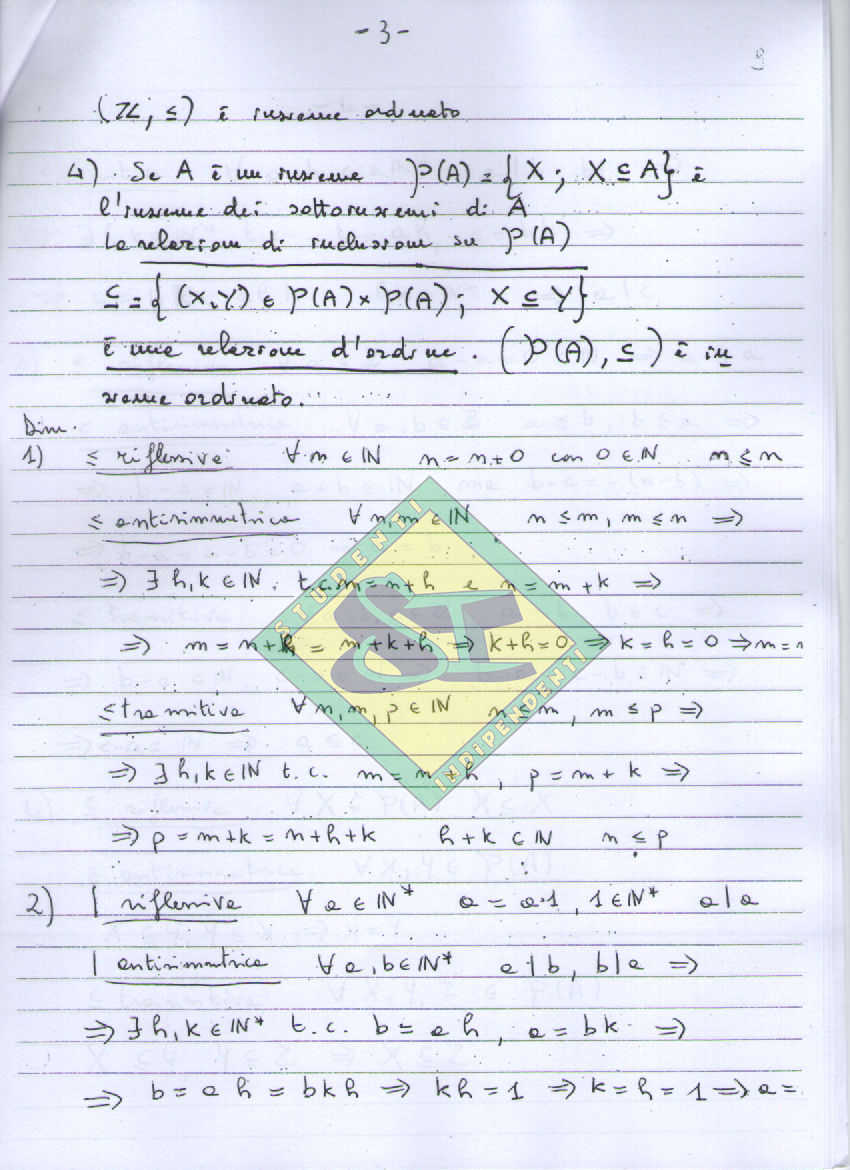 - 3 -
9
(ℤ, ≤) è insieme ordinato
4) Se A è un insieme P(A) = { X ; X ⊆ A } è
l'insieme dei sottoinsiemi di A
La relazione di inclusione su P(A)
⊆ = { (X,Y) ∈ P(A) × P(A) ; X ⊆ Y }
è una relazione d'ordine. (P(A), ⊆) è in
sieme ordinato.
Dim.
1) ≤ riflessiva: ∀ n ∈ ℕ n = n + 0 con 0 ∈ ℕ n ≤ n
≤ antisimmetrica ∀ n, m ∈ ℕ n ≤ m, m ≤ n ⇒
⇒ ∃ h, k ∈ ℕ t.c. m = n + h e n = m + k ⇒
⇒ m = n + h = m + k + h ⇒ k + h = 0 ⇒ k = h = 0 ⇒ m = n
≤ transitiva ∀ n, m, p ∈ ℕ n ≤ m, m ≤ p ⇒
⇒ ∃ h, k ∈ ℕ t.c. m = n + h, p = m + k ⇒
⇒ p = m + k = n + h + k h + k ∈ ℕ n ≤ p
2) | riflessiva ∀ a ∈ ℕ* a = a·1, 1 ∈ ℕ* a | a
| antisimmetrica ∀ a, b ∈ ℕ* a | b, b | a ⇒
⇒ ∃ h, k ∈ ℕ* t.c. b = a h, a = b k ⇒
⇒ b = a h = b k h ⇒ k h = 1 ⇒ k = h = 1 ⇒ a =
STUDENTI
SI
INDIPENDENTI